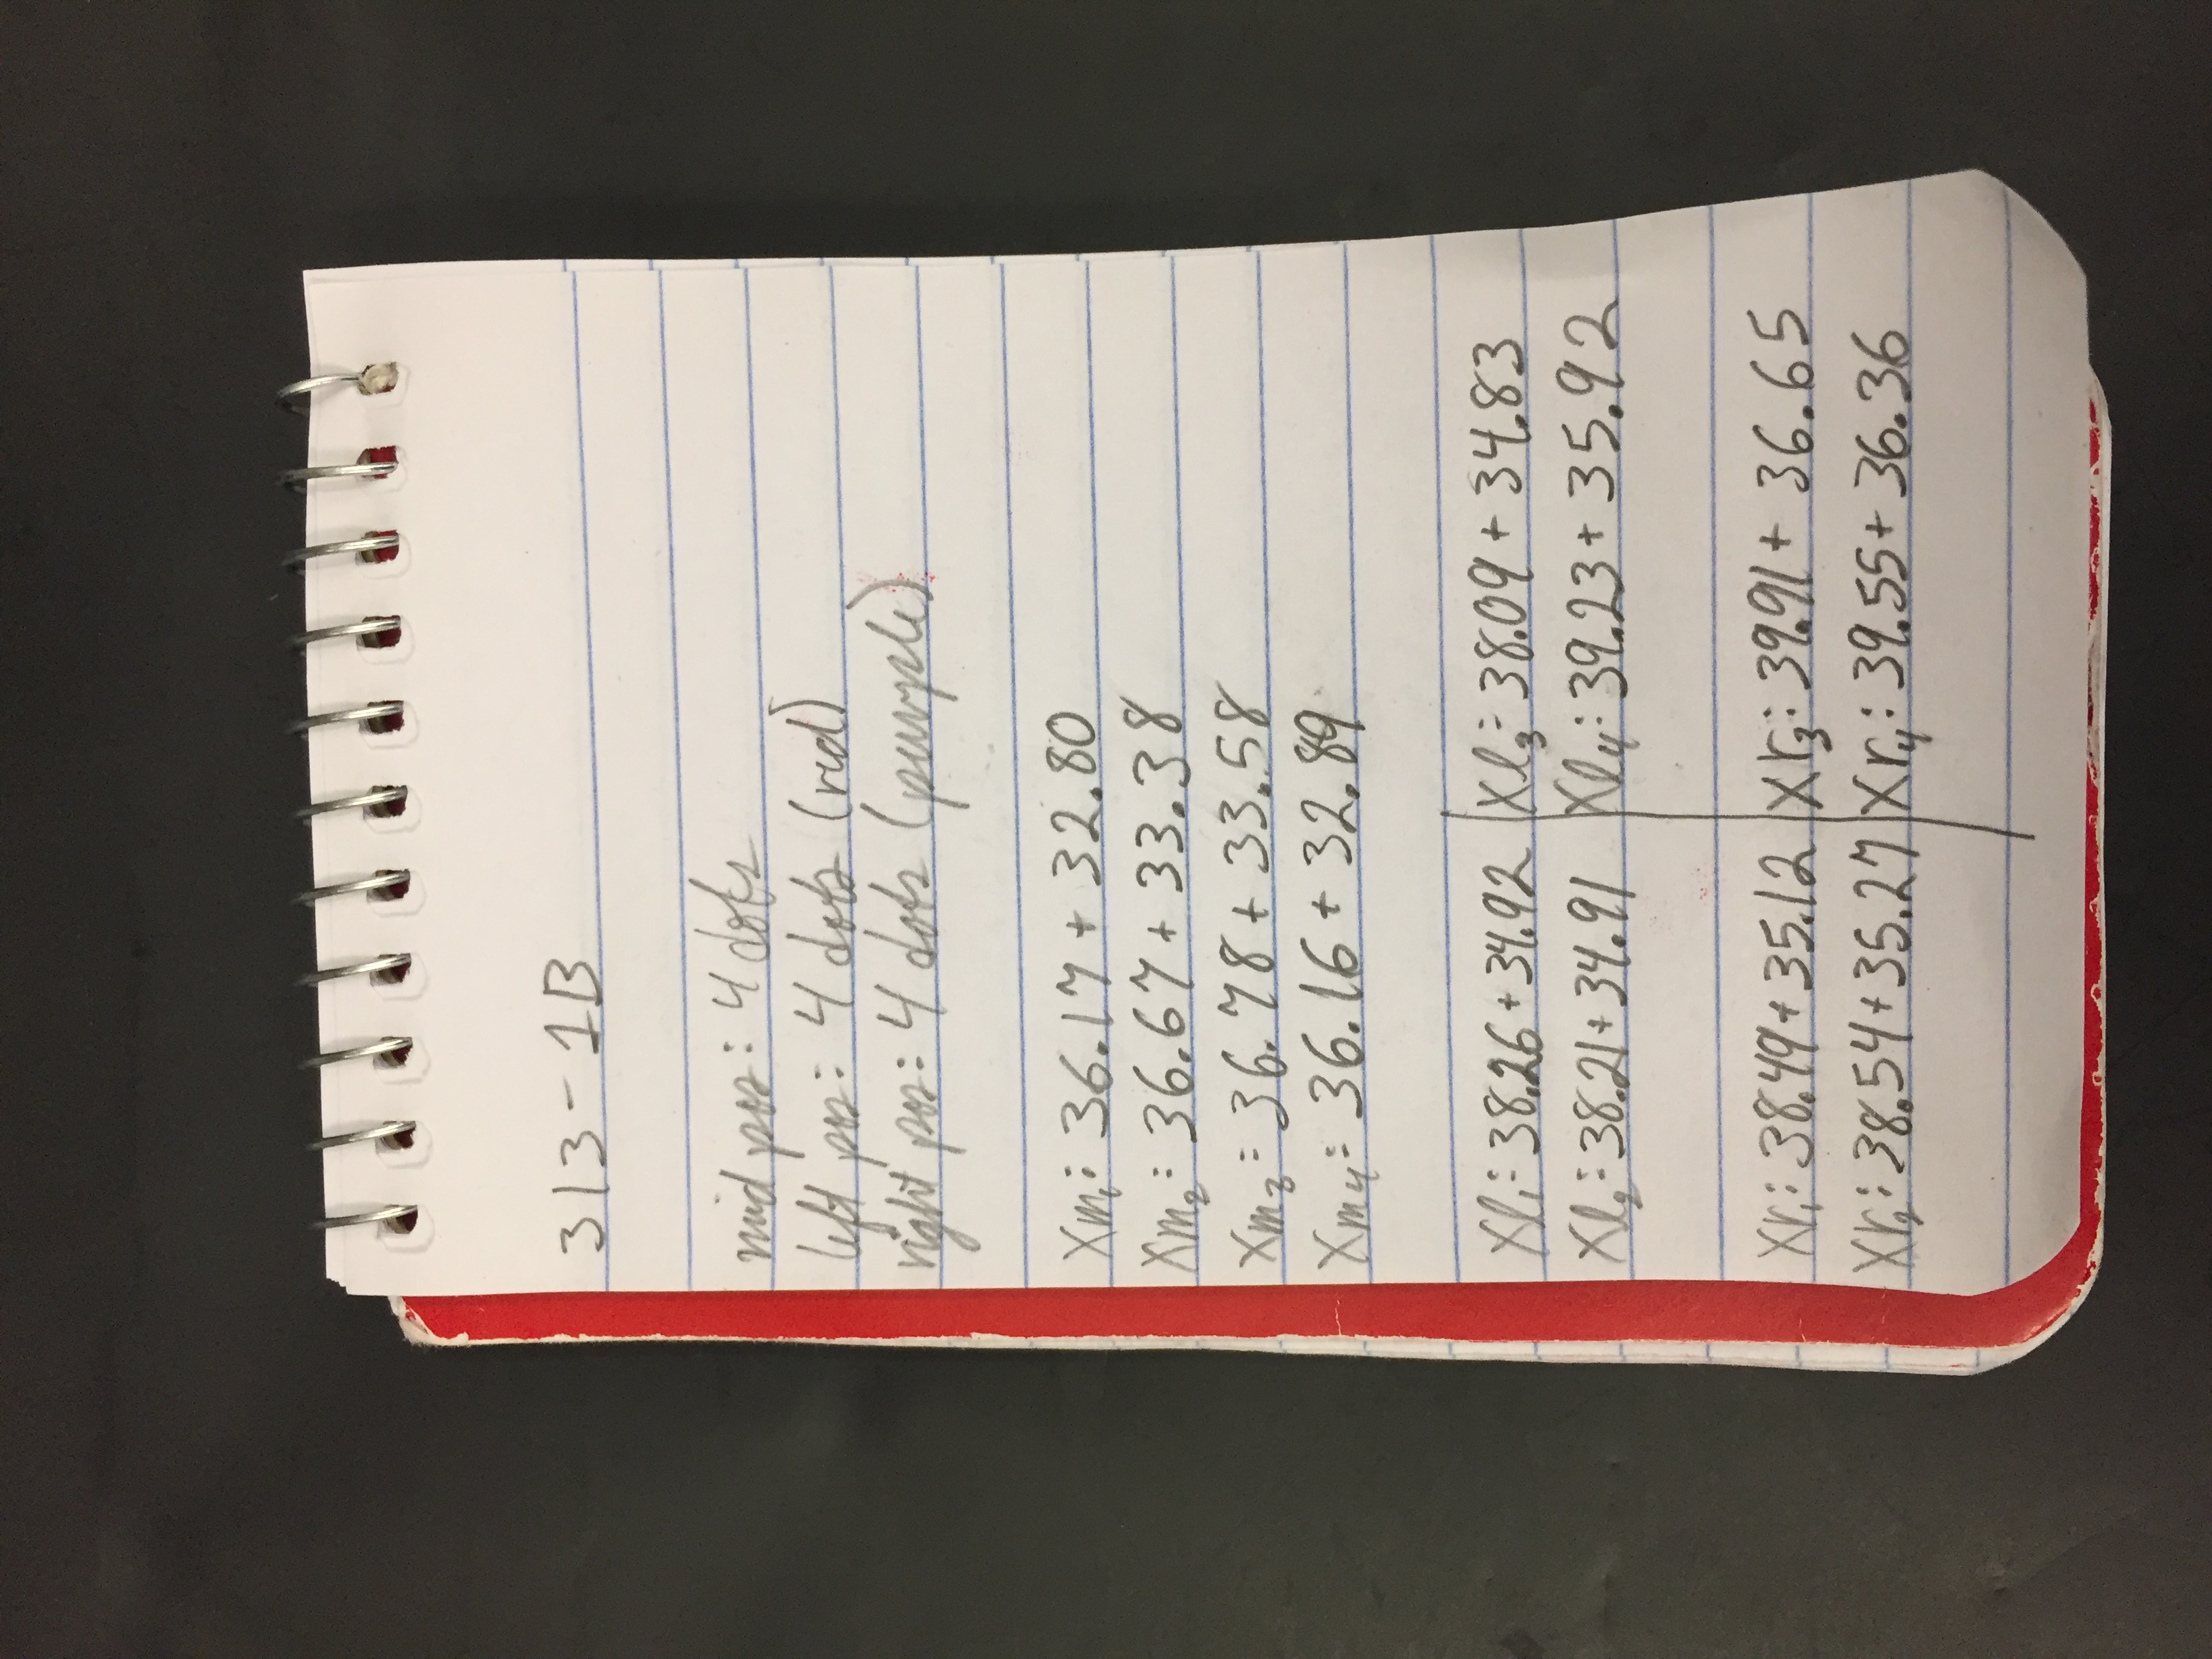 313-1B
mid pos: 4 dots
left pos: 4 dots (red)
right pos: 4 dots (purple)
Xm₁: 36.17 + 32.80
Xm₂: 36.67 + 33.38
Xm₃: 36.78 + 33.58
Xm₄: 36.16 + 32.89
Xl₁: 38.26 + 34.92
Xl₂: 38.21 + 34.91
Xl₃: 38.09 + 34.83
Xl₄: 39.23 + 35.92
Xr₁: 38.49 + 35.12
Xr₂: 38.54 + 35.27
Xr₃: 39.91 + 36.65
Xr₄: 39.55 + 36.36